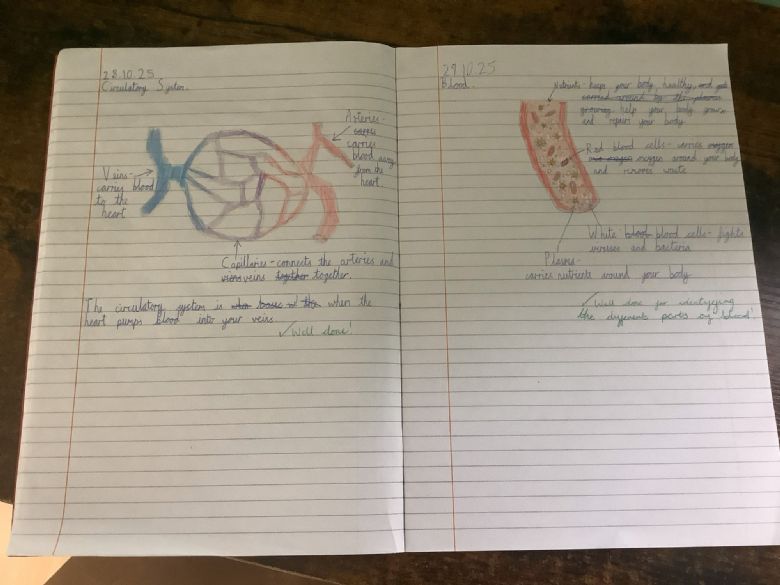 28.10.25
Circulatory System.
Arteries-
carries
carries
blood away
from the
heart.
Veins-
carries blood
to the
heart
Capillaries - connects the arteries and
viens veins together together.
The circulatory system is when the
heart pumps blood into your veis.
✓ Well done!
29.10.25
Blood.
Nutrients - keeps your body healthy, and
carried around by the plasma
growing help your body grow
and repairs your body
Red blood cells - carries oxygen
oxygen around your body
and removes waste
White blood blood cells - fights
viruses and bacteria
Plasma -
carries nutrients around your body
✓ Well done for identifying
the different parts of blood!